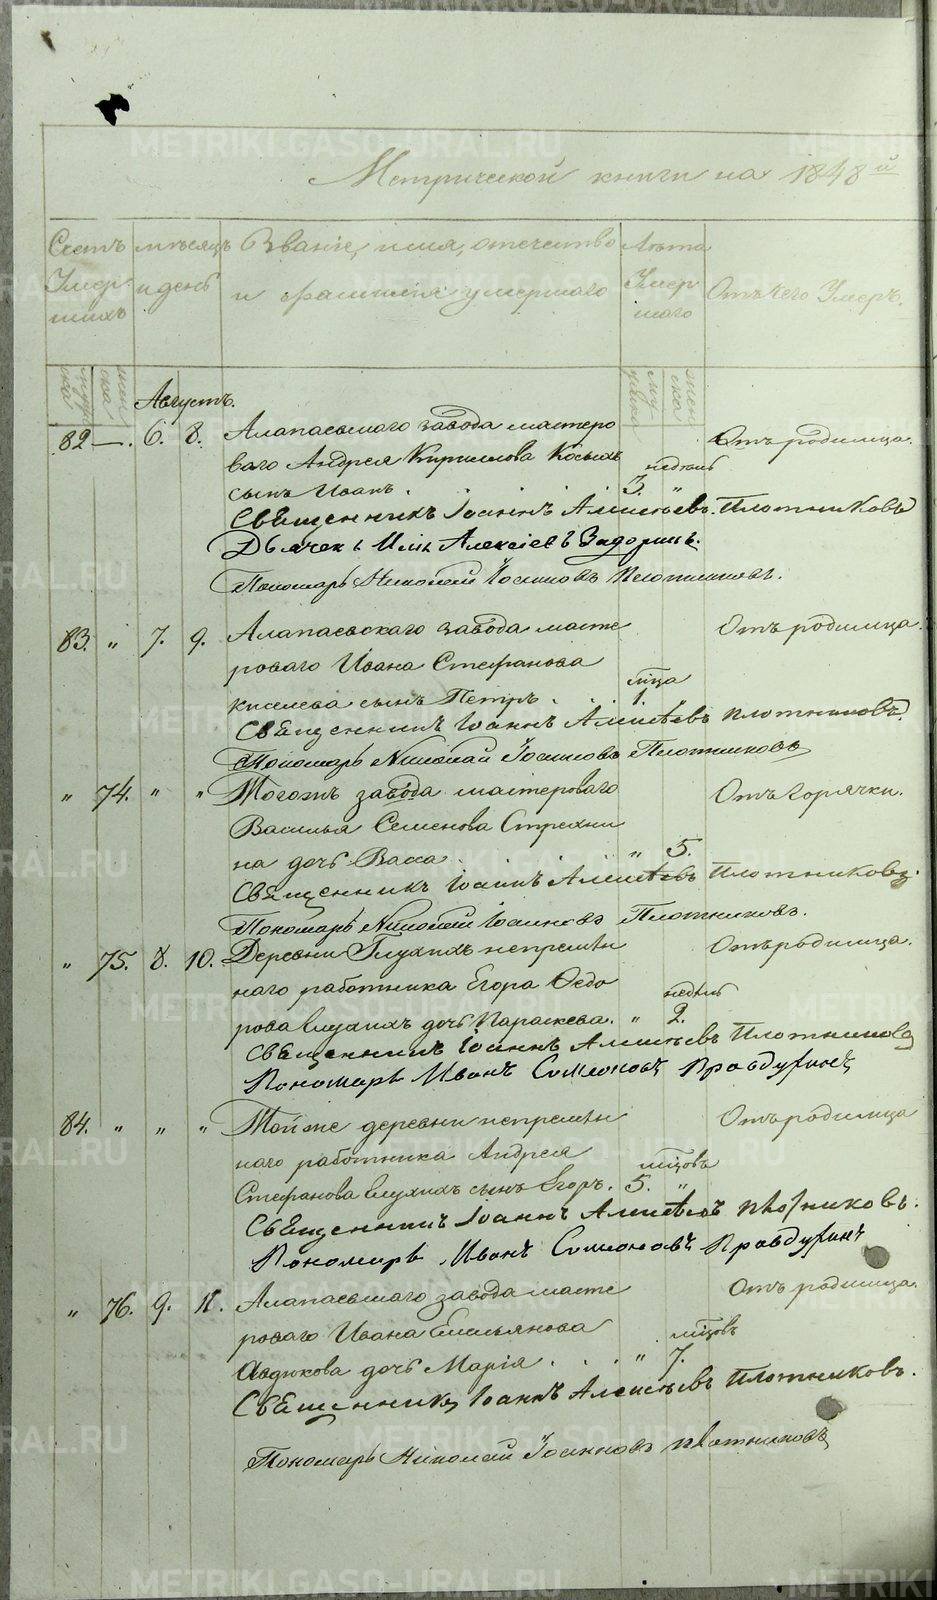 METRIKI.GASO-URAL.RU
Метрической книги на 1848й
Счетъ Умершихъ
мѣсяцъ и день
Званіе, имя, отечество и фамилія умершаго
Лѣта Умершаго
Отъ чего Умеръ.
Августъ.
82 —. 6. 8. Алапаевскаго завода мастеро
Отъ родимца.
ваго Андрея Кирилова Косыхъ
недѣль
сынъ Иванъ. 3. "
Священникъ Іоаннъ Алексѣевъ Плотниковъ
Дьячекъ Илія Алексіевъ Задоринъ.
Пономарь Николай Іоанновъ Плотниковъ.
83. " 7. 9. Алапаевскаго завода масте
Отъ родимца.
роваго Ивана Стефанова
мца
Киселева сынъ Петръ . . 1.
Священникъ Іоаннъ Алексѣевъ Плотниковъ.
Пономарь Николай Іоанновъ Плотниковъ
" 74. " " Тогожъ завода мастероваго
Отъ горячки.
Василья Семенова Стрехни
на дочь Васса. " 5.
Священникъ Іоаннъ Алексѣевъ Плотниковъ.
Пономарь Николай Іоанновъ Плотниковъ.
" 75. 8. 10. Деревни Глухихъ непремѣн
Отъ родимца.
наго работника Егора Ѳедо
недѣль
рова Глухихъ дочь Параскева. " 2.
Священникъ Іоаннъ Алексѣевъ Плотниковъ
Пономарь Иванъ Симеоновъ Правдухинъ
84. " " " Той же деревни непремѣн
Отъ родимца
наго работника Андрея
мцовъ
Стефанова Глухихъ сынъ Егоръ. 5. "
Священникъ Іоаннъ Алексѣевъ Плотниковъ.
Пономарь Иванъ Симеоновъ Правдухинъ
" 76. 9. 11. Алапаевскаго завода масте
Отъ родимца.
роваго Ивана Емельянова
мцовъ
Авдюкова дочь Марія . . " 7.
Священникъ Іоаннъ Алексѣевъ Плотниковъ.
Пономарь Николай Іоанновъ Плотниковъ
METRIKI.GASO-URAL.RU